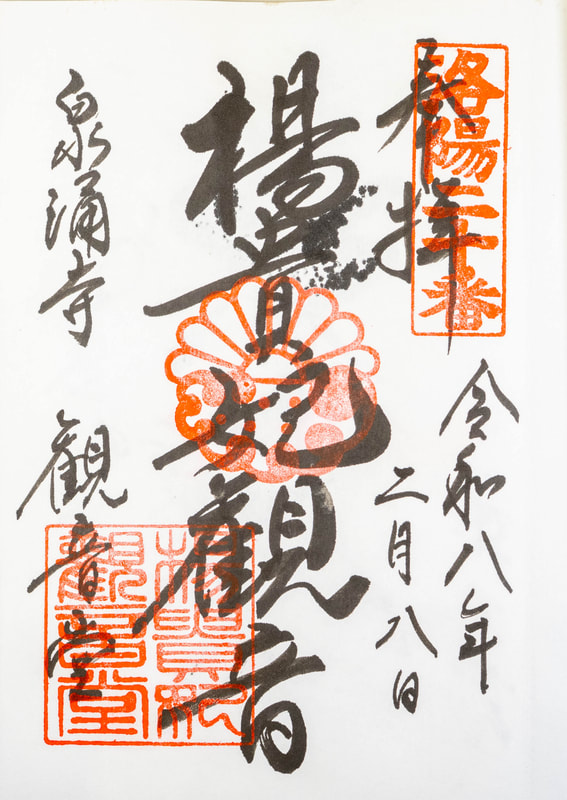 奉拝
洛陽二十番
令和八年
二月八日
楊貴妃観音
泉涌寺
観音堂
楊貴妃
観音堂